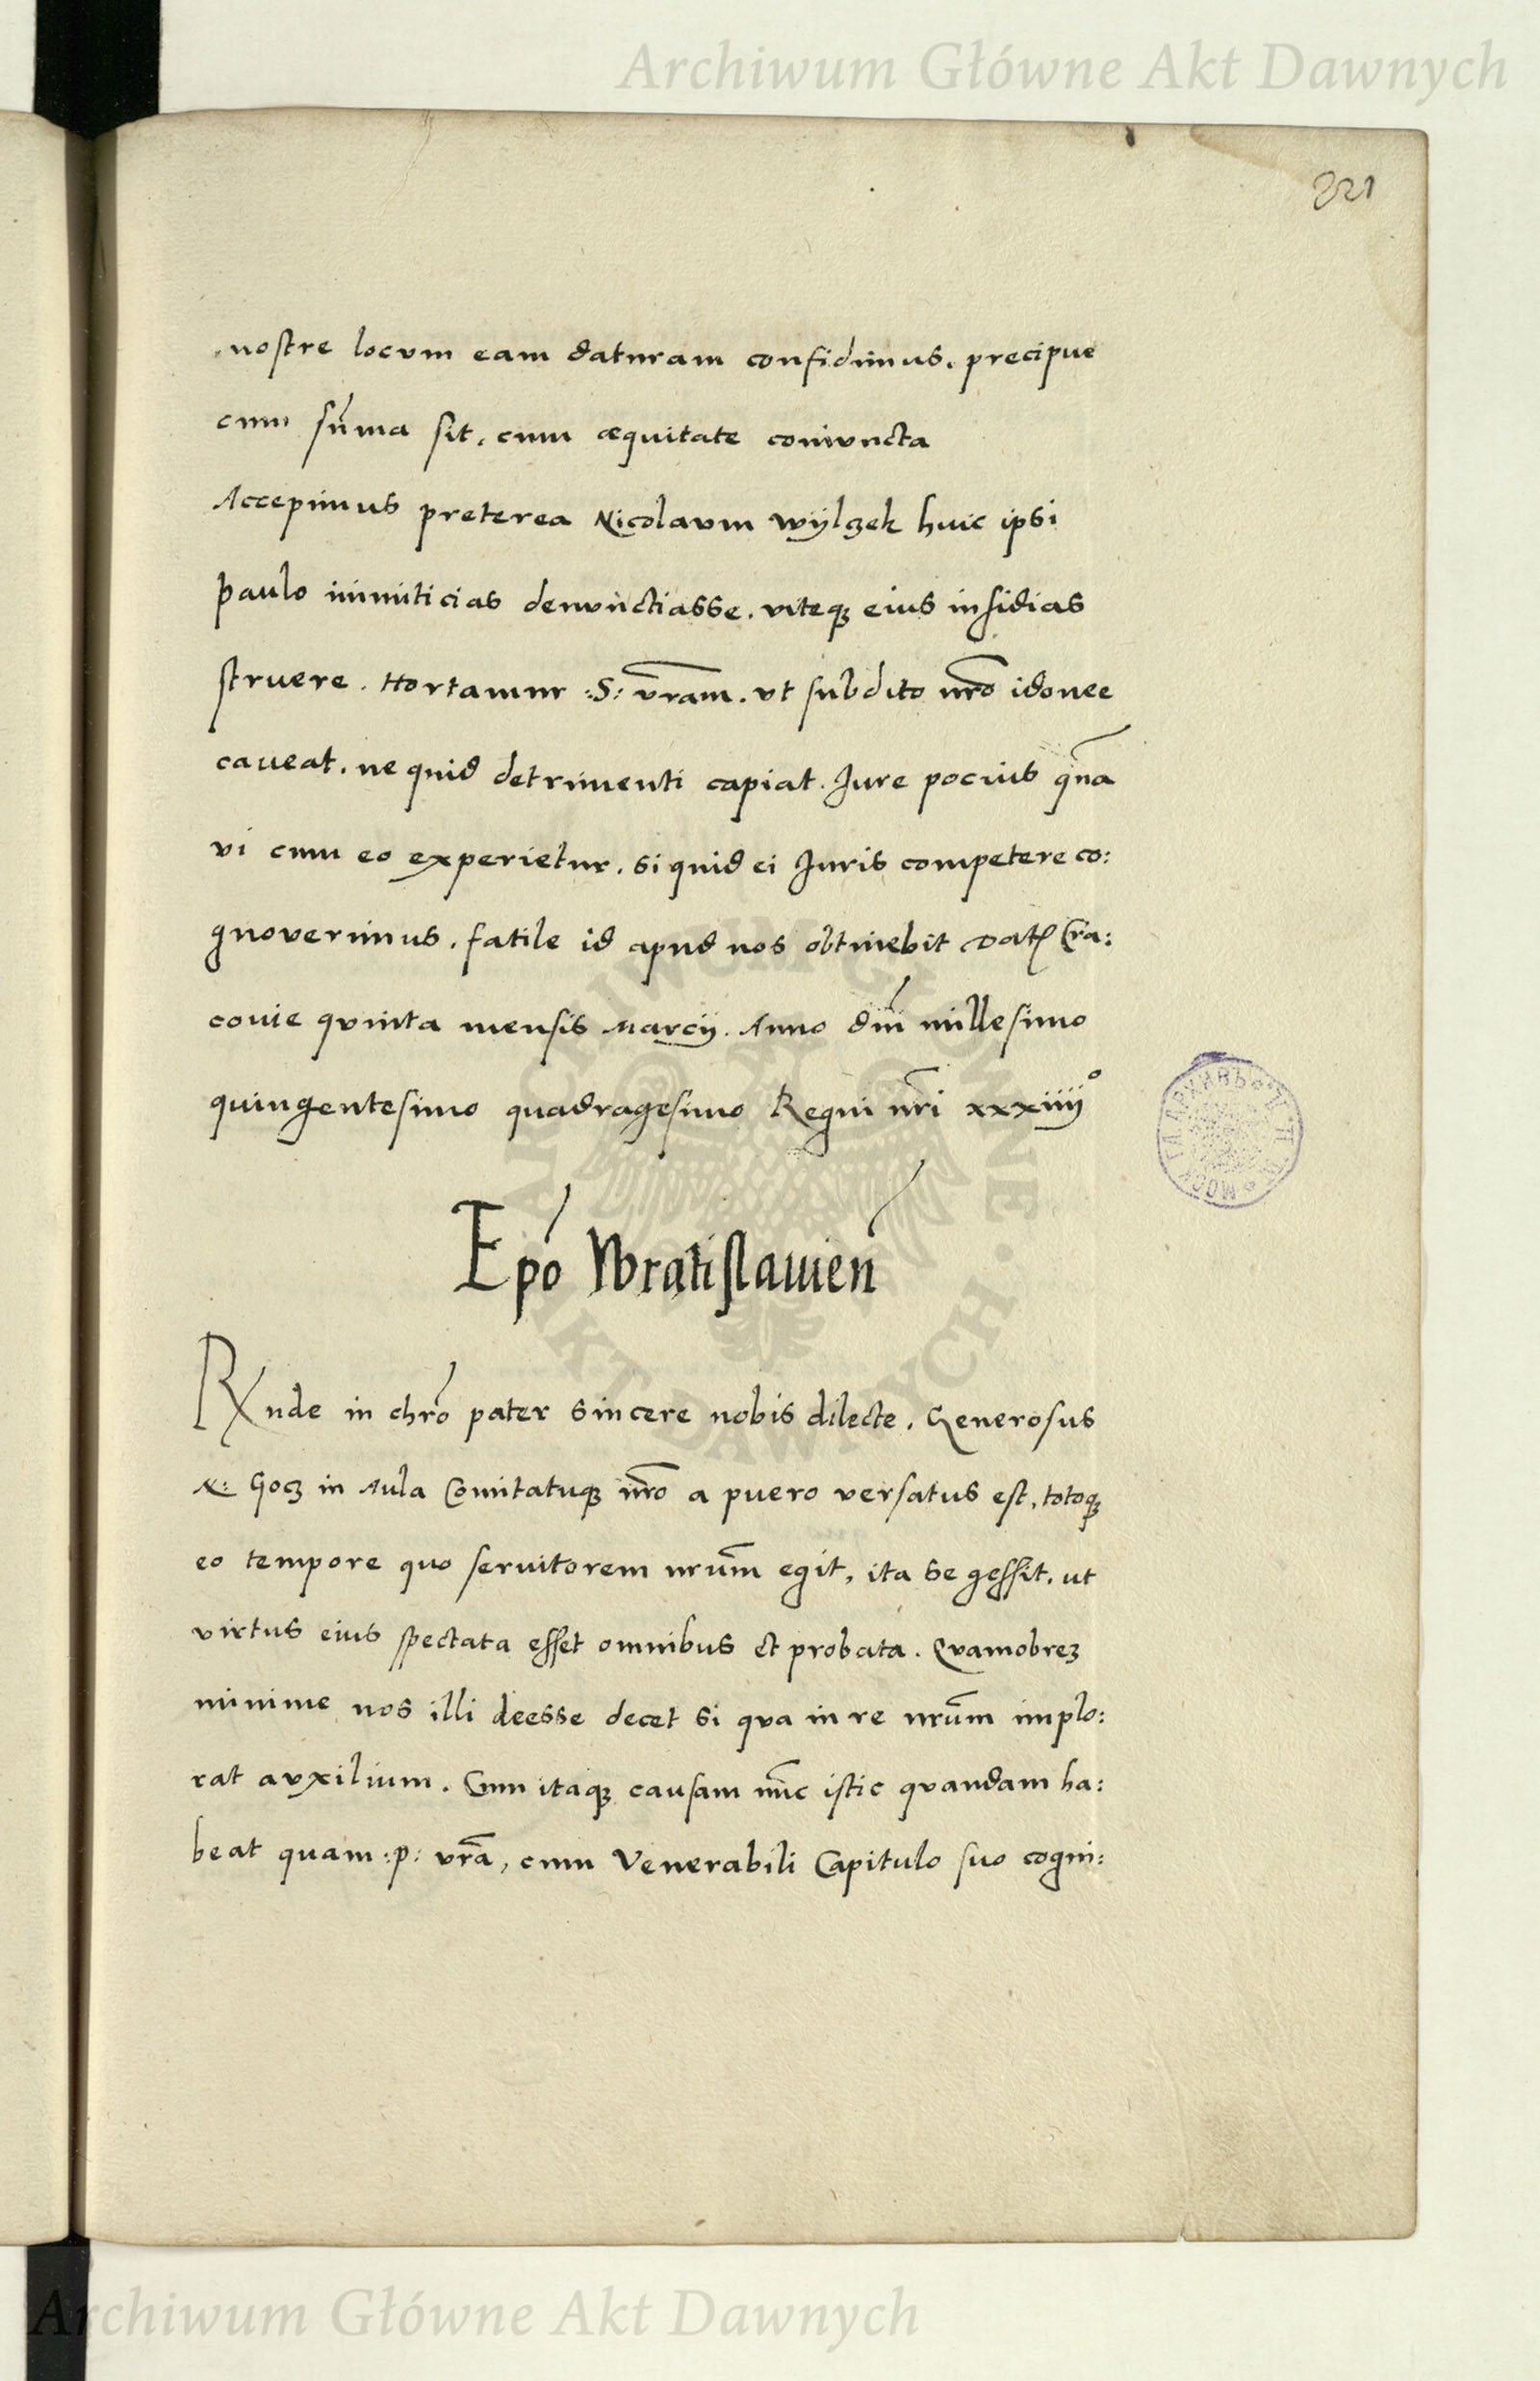 Archiwum Główne Akt Dawnych
221
nostre locum eam daturam confidimus. precipue
cum sūma sit, cum æquitate coniuncta
Accepimus preterea Nicolaum Wÿlczek huic ipsi
Paulo inimiticias denunctiasse. viteqз eius insidias
struere. Hortamur :S: vr̄am. vt subdito nr̄o idonee
caveat. ne quid detrimenti capiat. Jure pocius qnā
vi cum eo experietur. si quid ei Juris competere co:
gnoverimus. fatile id apud nos obtinebit Datꝭ Cra:
covie quinta mensis Marcij. Anno dn̄i millesimo
quingentesimo quadragesimo Regni nr̄i xxxiiij°
Epō Wratislauien̄
Rnde in chrō pater sincere nobis dilecte. Generosus
N: Gocz in Aula Comitatuqз nr̄o a puero versatus est, totoqз
eo tempore quo seruitorem nrūm egit, ita se gessit. ut
virtus eius spectata esset omnibus et probata. Quamobreз
minime nos illi deesse decet si qua in re nrūm implo:
rat auxilium. Cum itaqз causam nūc istic quandam ha:
beat quam :p: vrā, cum Venerabili Capitulo suo cogni:
ARCHIWUM GŁÓWNE AKT DAWNYCH
Archiwum Główne Akt Dawnych